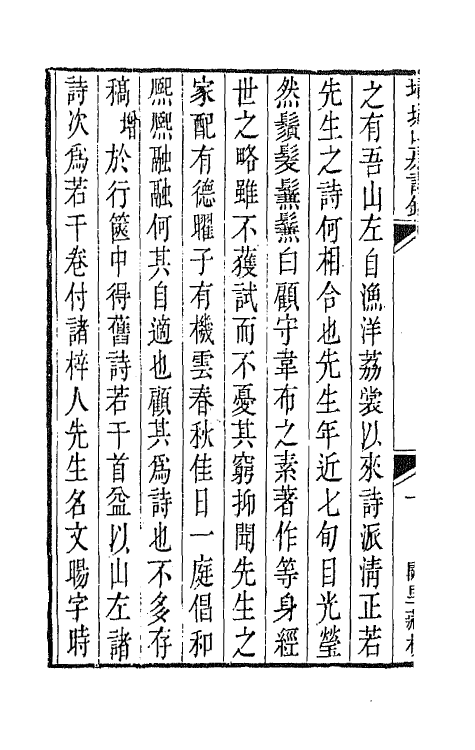 之有吾山左自漁洋荔裳以來詩派清正若
先生之詩何相合也先生年近七旬目光瑩
然鬚髮鬑鬑白顧守韋布之素著作等身經
世之略雖不獲試而不憂其窮抑聞先生之
家配有德曜子有機雲春秋佳日一庭倡和
熈熈融融何其自適也顧其為詩也不多存
稿增於行篋中得舊詩若干首益以山左諸
詩次為若干卷付諸梓人先生名文暘字時